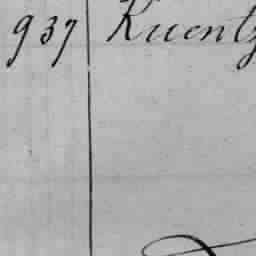 937 Kuentz